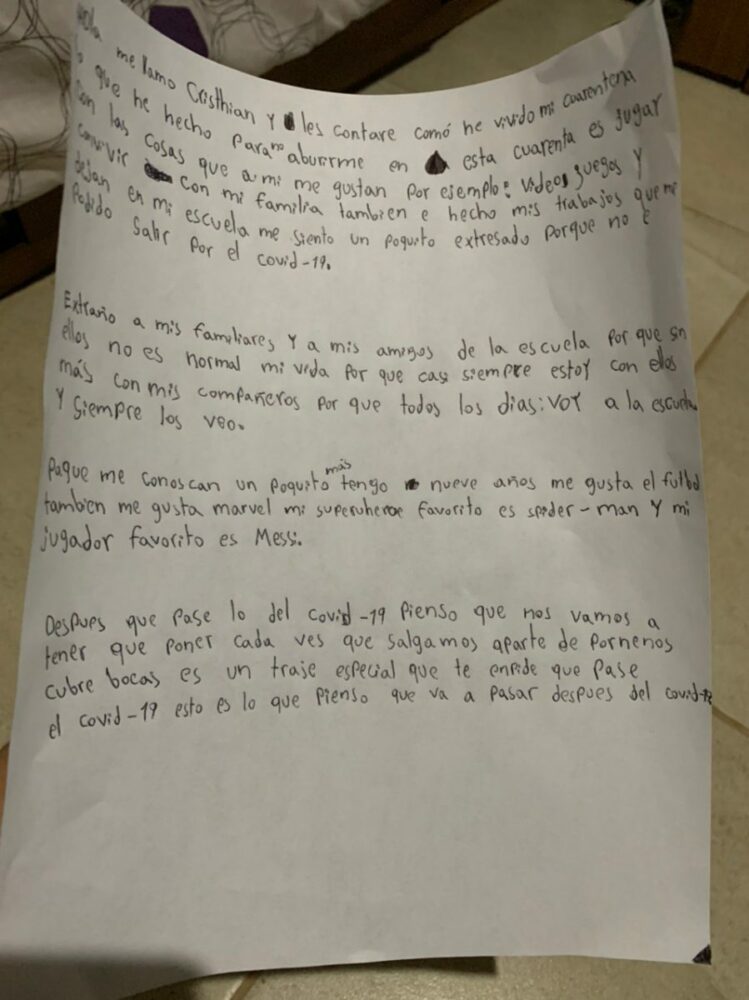 Hola me llamo Cristhian y les contare comó he vivido mi cuarentena
lo que he hecho para no aburirme en esta cuarenta es jugar
con las cosas que a mi me gustan por ejemplo: videos juegos y
convivir con mi familia tambien e hecho mis trabajos que me
dejan en mi escuela me siento un poquito extresado porque no e
podido salir por el covid-19.
Extraño a mis familiares y a mis amigos de la escuela por que sin
ellos no es normal mi vida por que casi siempre estoy con ellos
más con mis compañeros por que todos los dias: voy a la escuela
y siempre los veo.
Paque me conoscan un poquito más tengo nueve años me gusta el futbol
tambien me gusta marvel mi superuheroe favorito es spider-man y mi
jugador favorito es Messi.
Despues que pase lo del covid-19 pienso que nos vamos a
tener que poner cada ves que salgamos aparte de pornenos
cubre bocas es un traje especial que te enpide que pase
el covid-19 esto es lo que pienso que va a pasar despues del covid-19